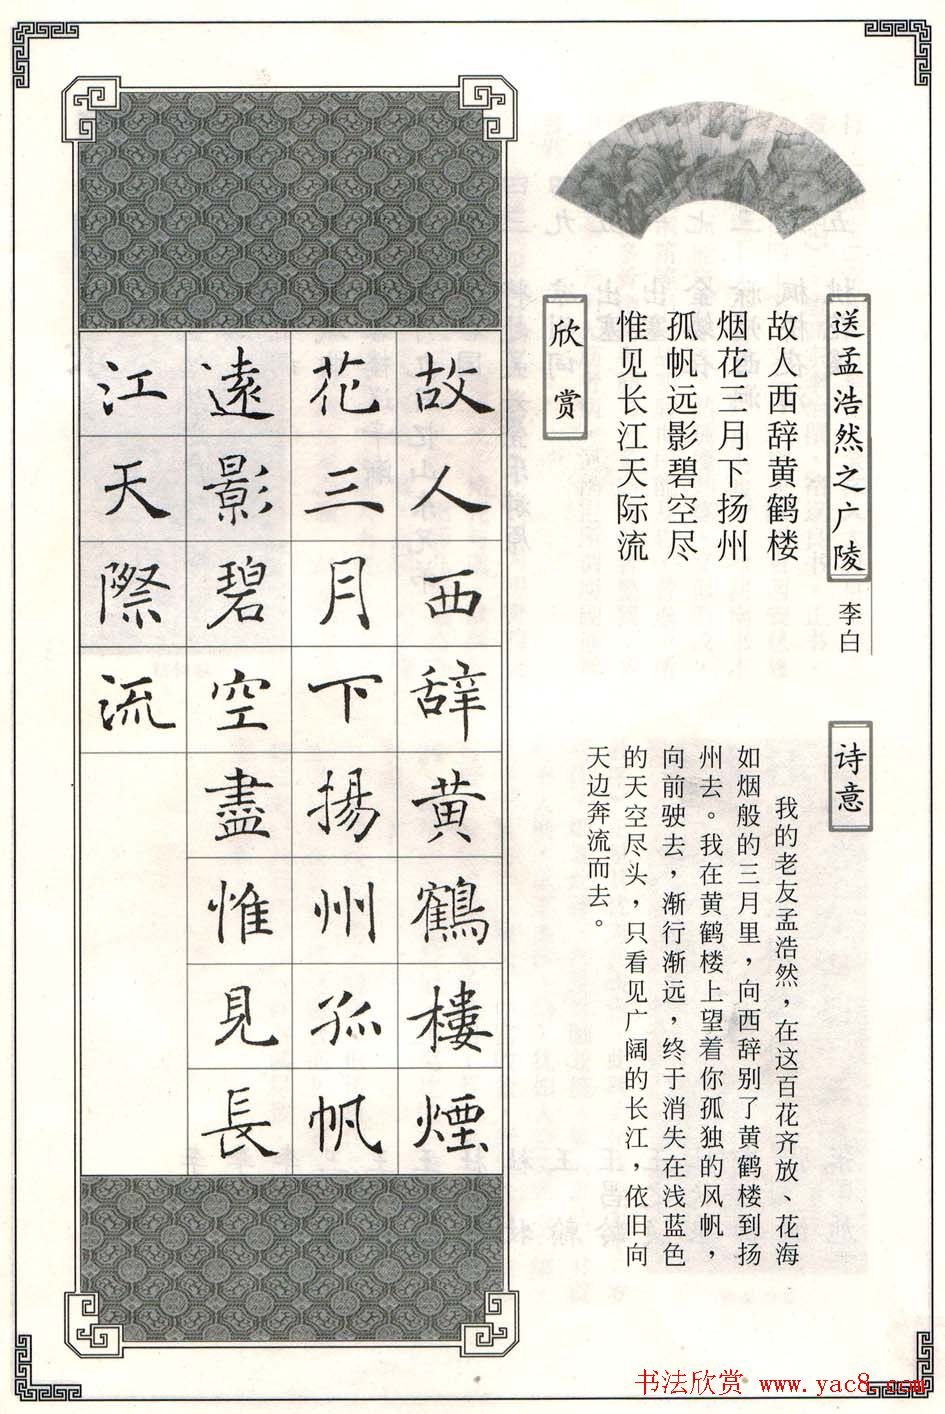 送孟浩然之广陵
李白
故人西辞黄鹤楼
烟花三月下扬州
孤帆远影碧空尽
惟见长江天际流
欣赏
诗意
我的老友孟浩然，在这百花齐放、花海
如烟般的三月里，向西辞别了黄鹤楼到扬
州去。我在黄鹤楼上望着你孤独的风帆，
向前驶去，渐行渐远，终于消失在浅蓝色
的天空尽头，只看见广阔的长江，依旧向
天边奔流而去。
故人西辭黄鶴樓煙
花三月下揚州孤帆
遠影碧空盡惟見長
江天際流
书法欣赏 www.yac8.com